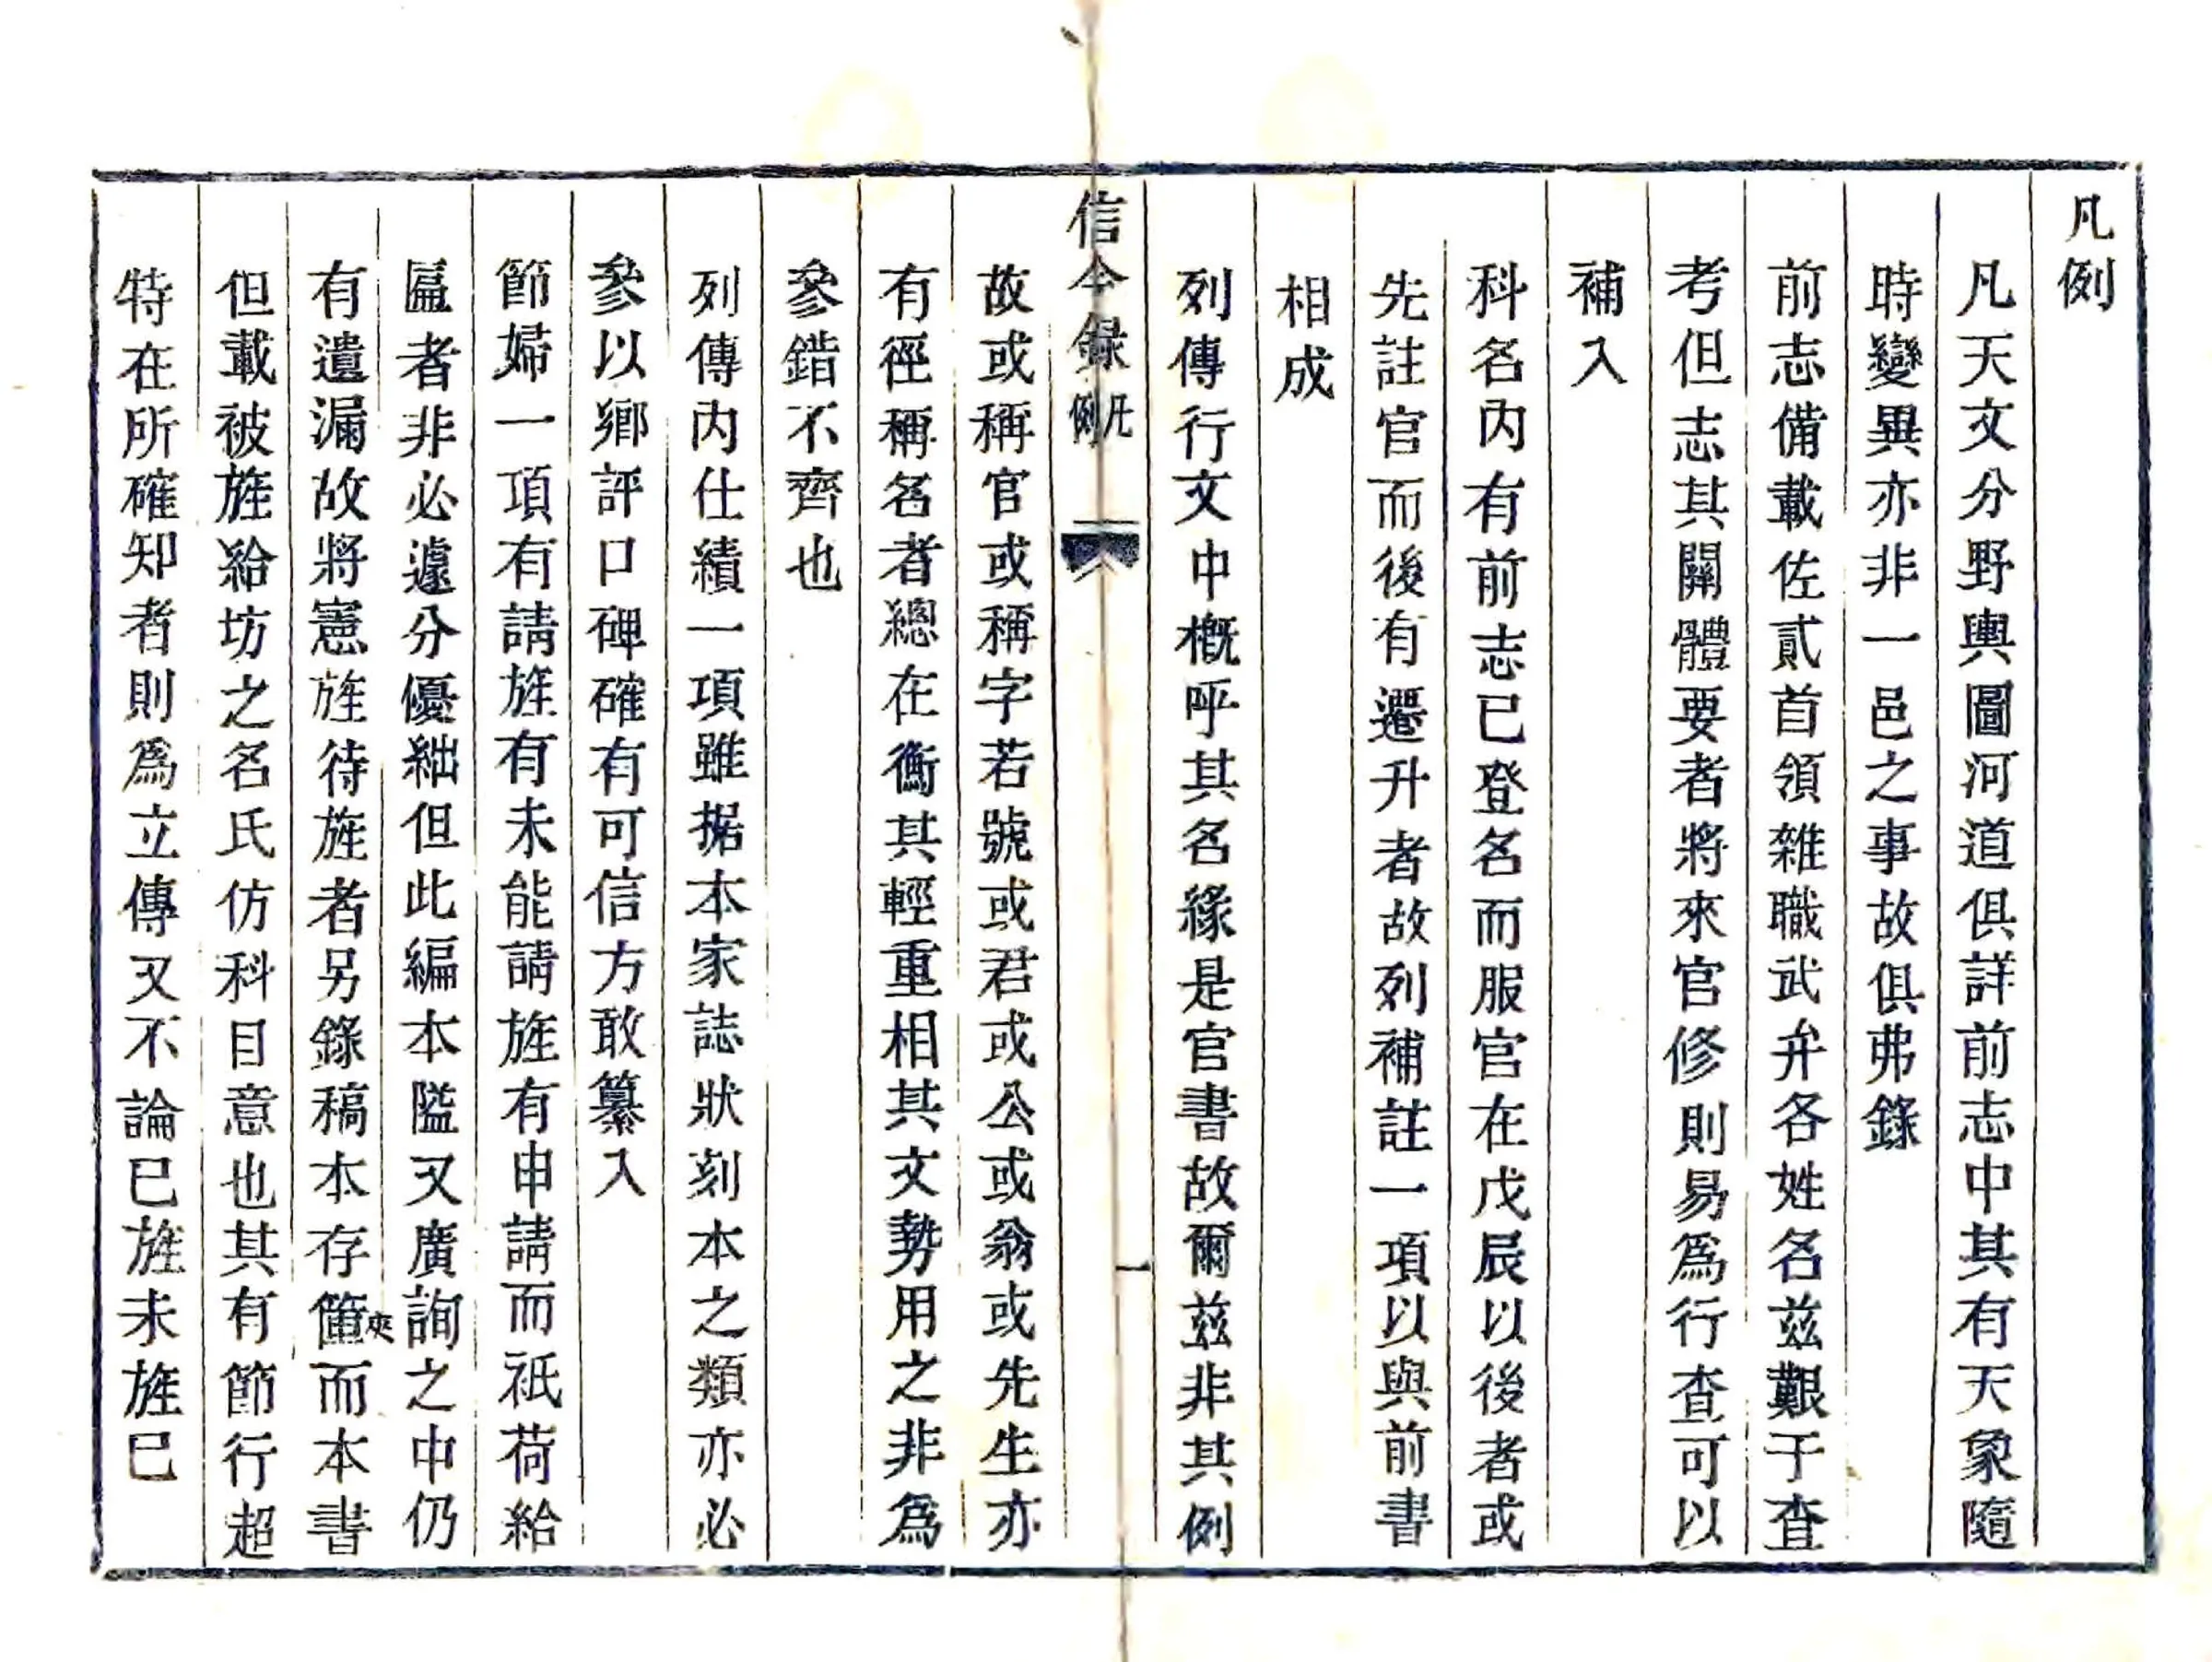 凡例
凡天文分野輿圖河道俱詳前志中其有天象隨
時變異亦非一邑之事故俱弗錄
前志備載佐貳首領雜職武弁各姓名兹艱于查
考但志其關體要者將來官修則易爲行查可以
補入
科名內有前志已登名而服官在戊辰以後者或
先註官而後有遷升者故列補註一項以與前書
相成
列傳行文中概呼其名緣是官書故爾兹非其例
信今録 凡例 一
故或稱官或稱字若號或君或公或翁或先生亦
有徑稱名者總在衡其輕重相其文勢用之非爲
參錯不齊也
列傳內仕績一項雖据本家誌狀刻本之類亦必
參以鄉評口碑確有可信方敢纂入
節婦一項有請旌有未能請旌有申請而祇荷給
匾者非必遽分優絀但此編本隘又廣詢之中仍
有遺漏故將憲旌待旌者另錄稿本存篋夾而本書
但載被旌給坊之名氏仿科目意也其有節行超
特在所確知者則爲立傳又不論已旌未旌已